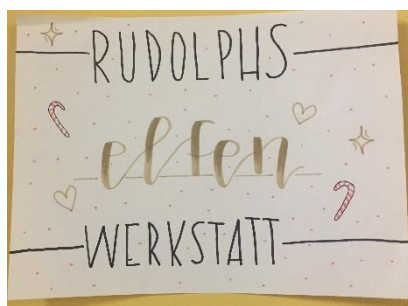 RUDOLPHS
elfen
WERKSTATT